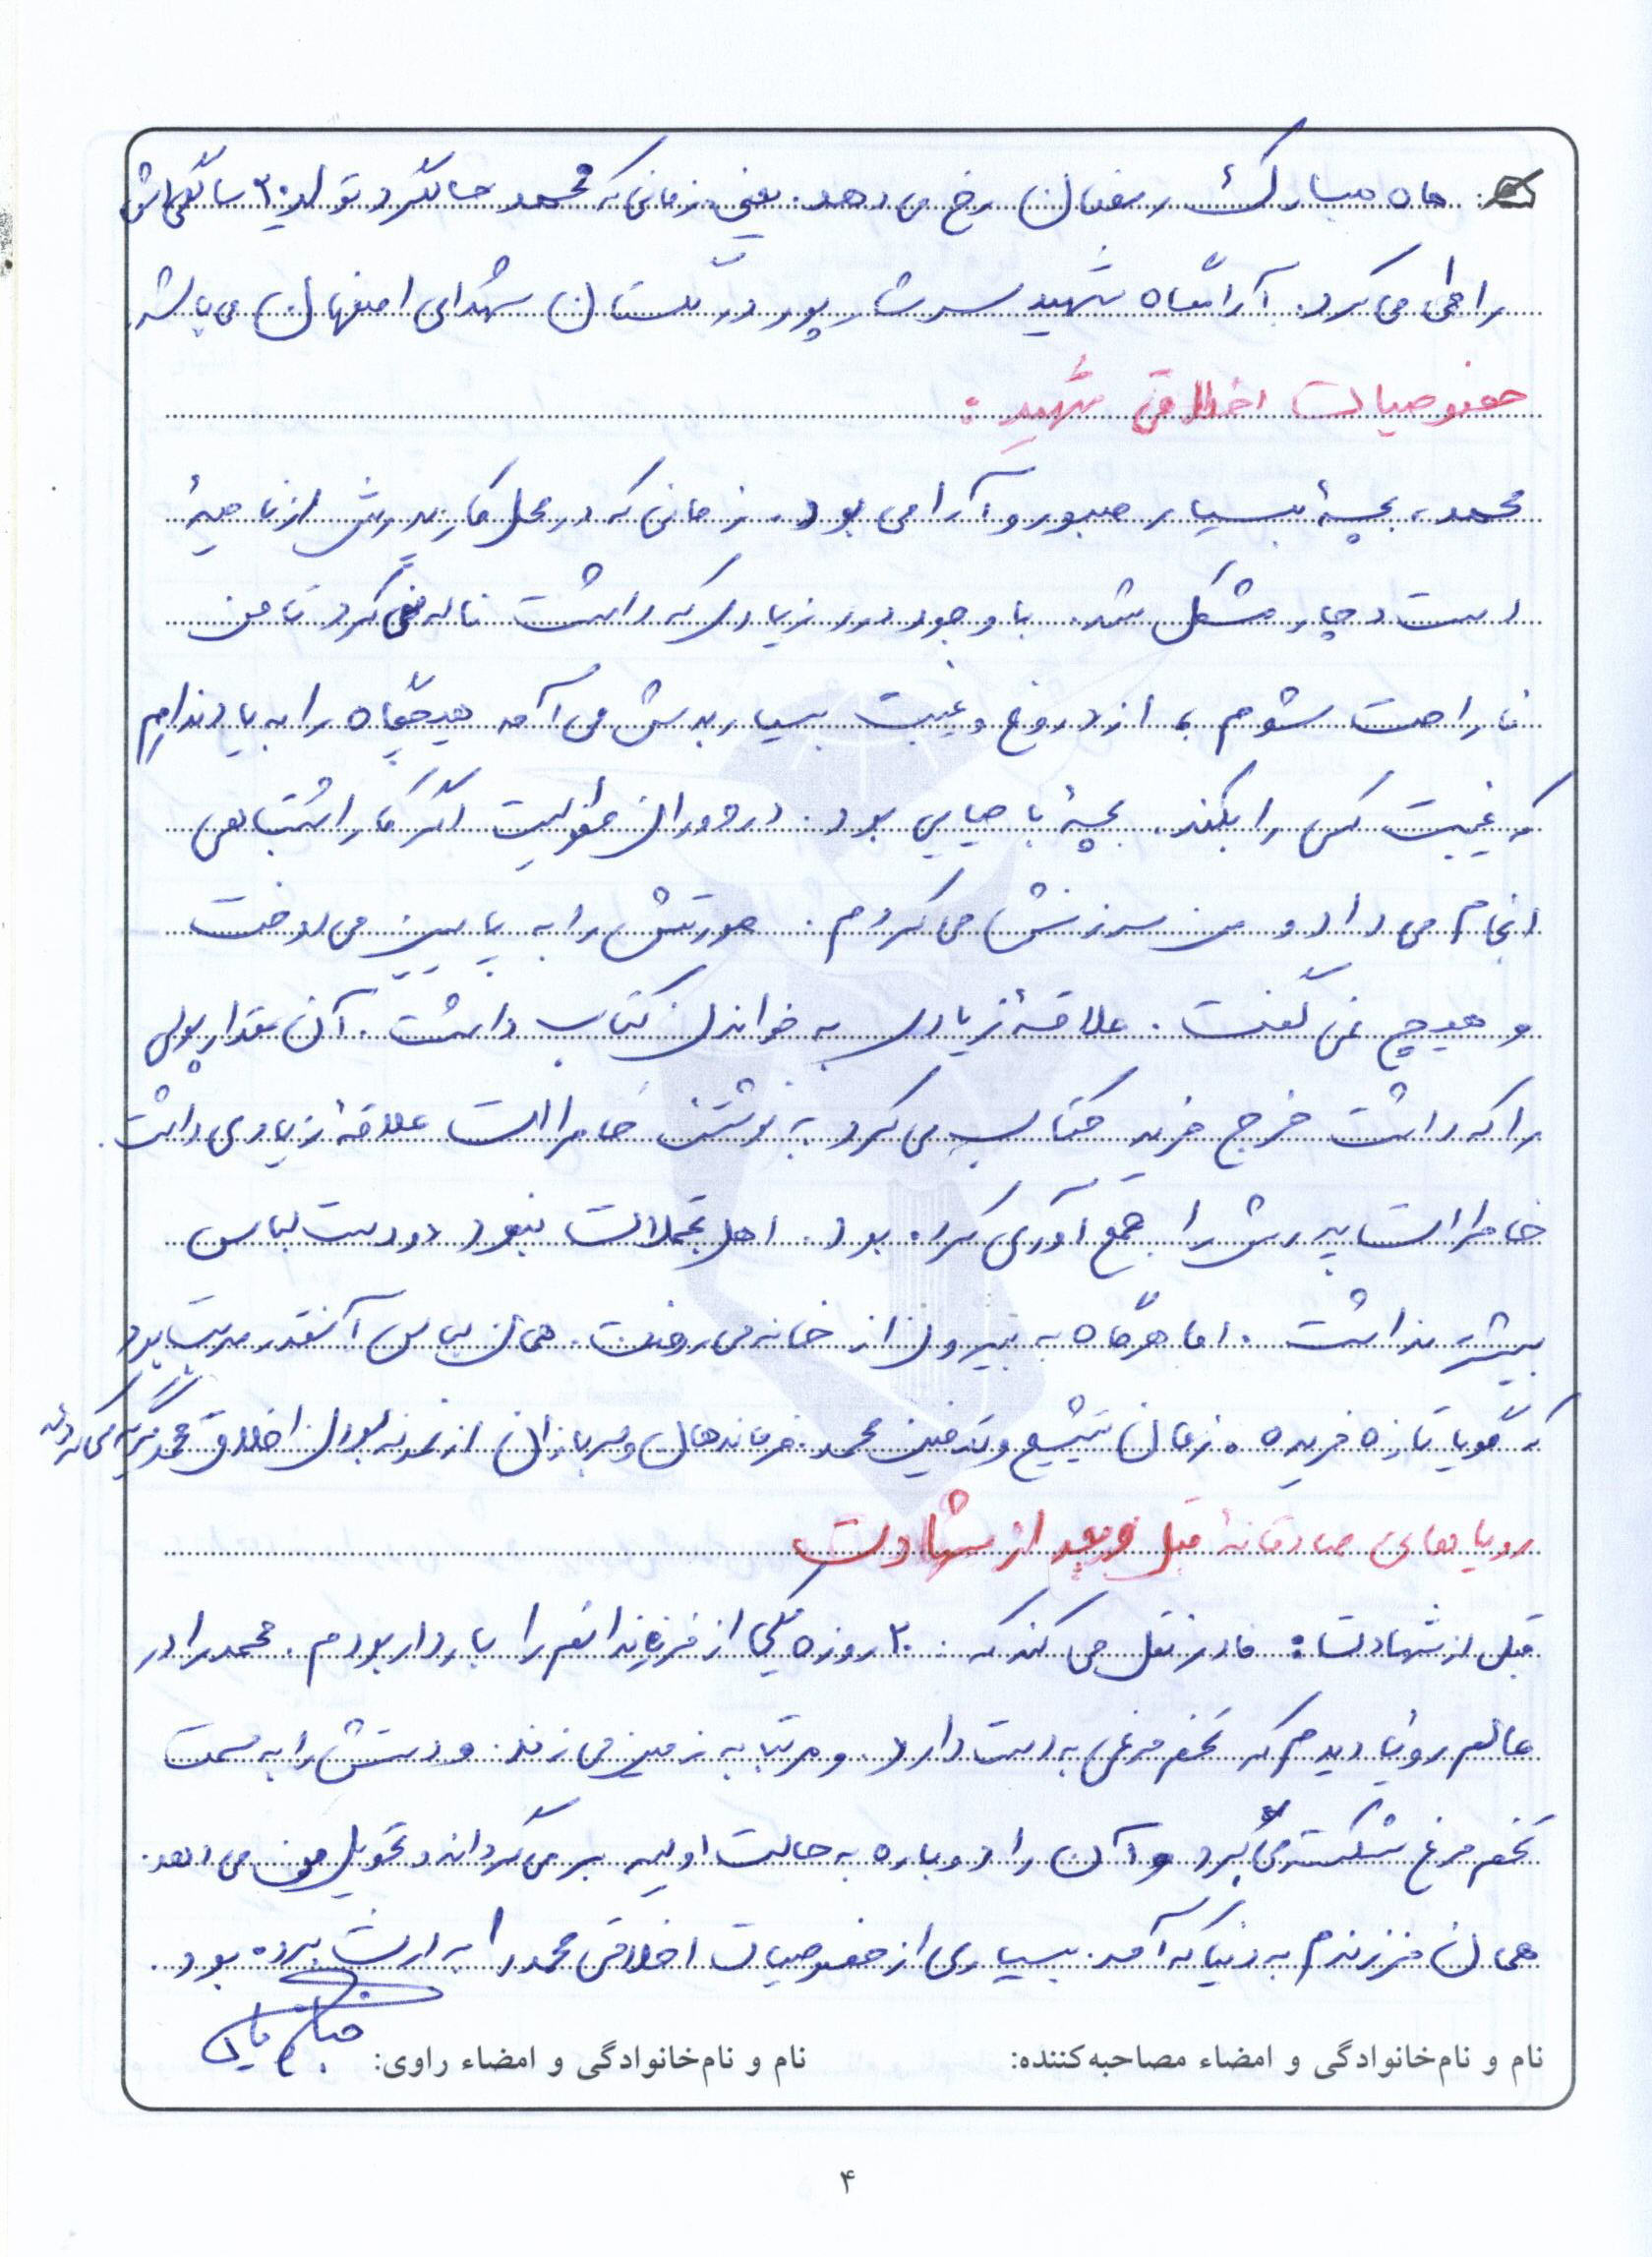 ماه مبارک رمضان رخ می دهد. یعنی زمانی که محمد سالگرد تولد ۲۰ سالگی اش
را طی می کرد. آرامگاه شهید سرشار پور در گلستان شهدای اصفهان می باشد.
خصوصیات اخلاقی شهید :
محمد، بچۀ بسیار صبور و آرامی بود. زمانی که در محل کار پدرش از ناحیۀ
دست دچار مشکل شد. با وجود درد زیادی که داشت ناله نمی کرد تا من
ناراحت شوم، از دروغ و غیبت بسیار بدش می آمد هیچگاه را به یاد ندارم
که غیبت کسی را بکند. بچۀ با حیایی بود. در دوران طفولیت اگر کار اشتباهی
انجام می داد و من سرزنش می کردم. صورتش را به پایین می دوخت
و هیچ نمی گفت. علاقۀ زیادی به خواندن کتاب داشت. آن مقدار پولی
را که داشت خرج خرید کتاب می کرد به نوشتن خاطرات علاقۀ زیادی داشت.
خاطرات پدرش را جمع آوری کرده بود. اهل تجملات نبود دو دست لباس
بیشتر نداشت. اما هرگاه به بیرون از خانه می رفت. همان لباس آنقدر مرتب بود
که گویا تازه خریده. زمان تشییع و تدفین محمد. فرماندهان و سربازان از نمونه بودن اخلاق محمد گریه می کردند
رویاهای صادقانۀ قبل و بعد از شهادت
قبل از شهادت: مادر نقل می کند که: ۲۰ روزه یکی از فرزندانم را باردار بودم. محمد را در
عالم رویا دیدم که تخم مرغی به دست دارد. و مرتب به زمین می زند. و دستش را به سمت
تخم مرغ شکسته می گیرد و آن را دوباره به حالت اولیه بر می گرداند و تحویل من می دهد.
همان فرزندم به دنیا که آمد. بسیاری از خصوصیات اخلاقی محمد را به ارث برده بود.
نام و نام‌خانوادگی و امضاء مصاحبه‌کننده: نام و نام‌خانوادگی و امضاء راوی:
۴